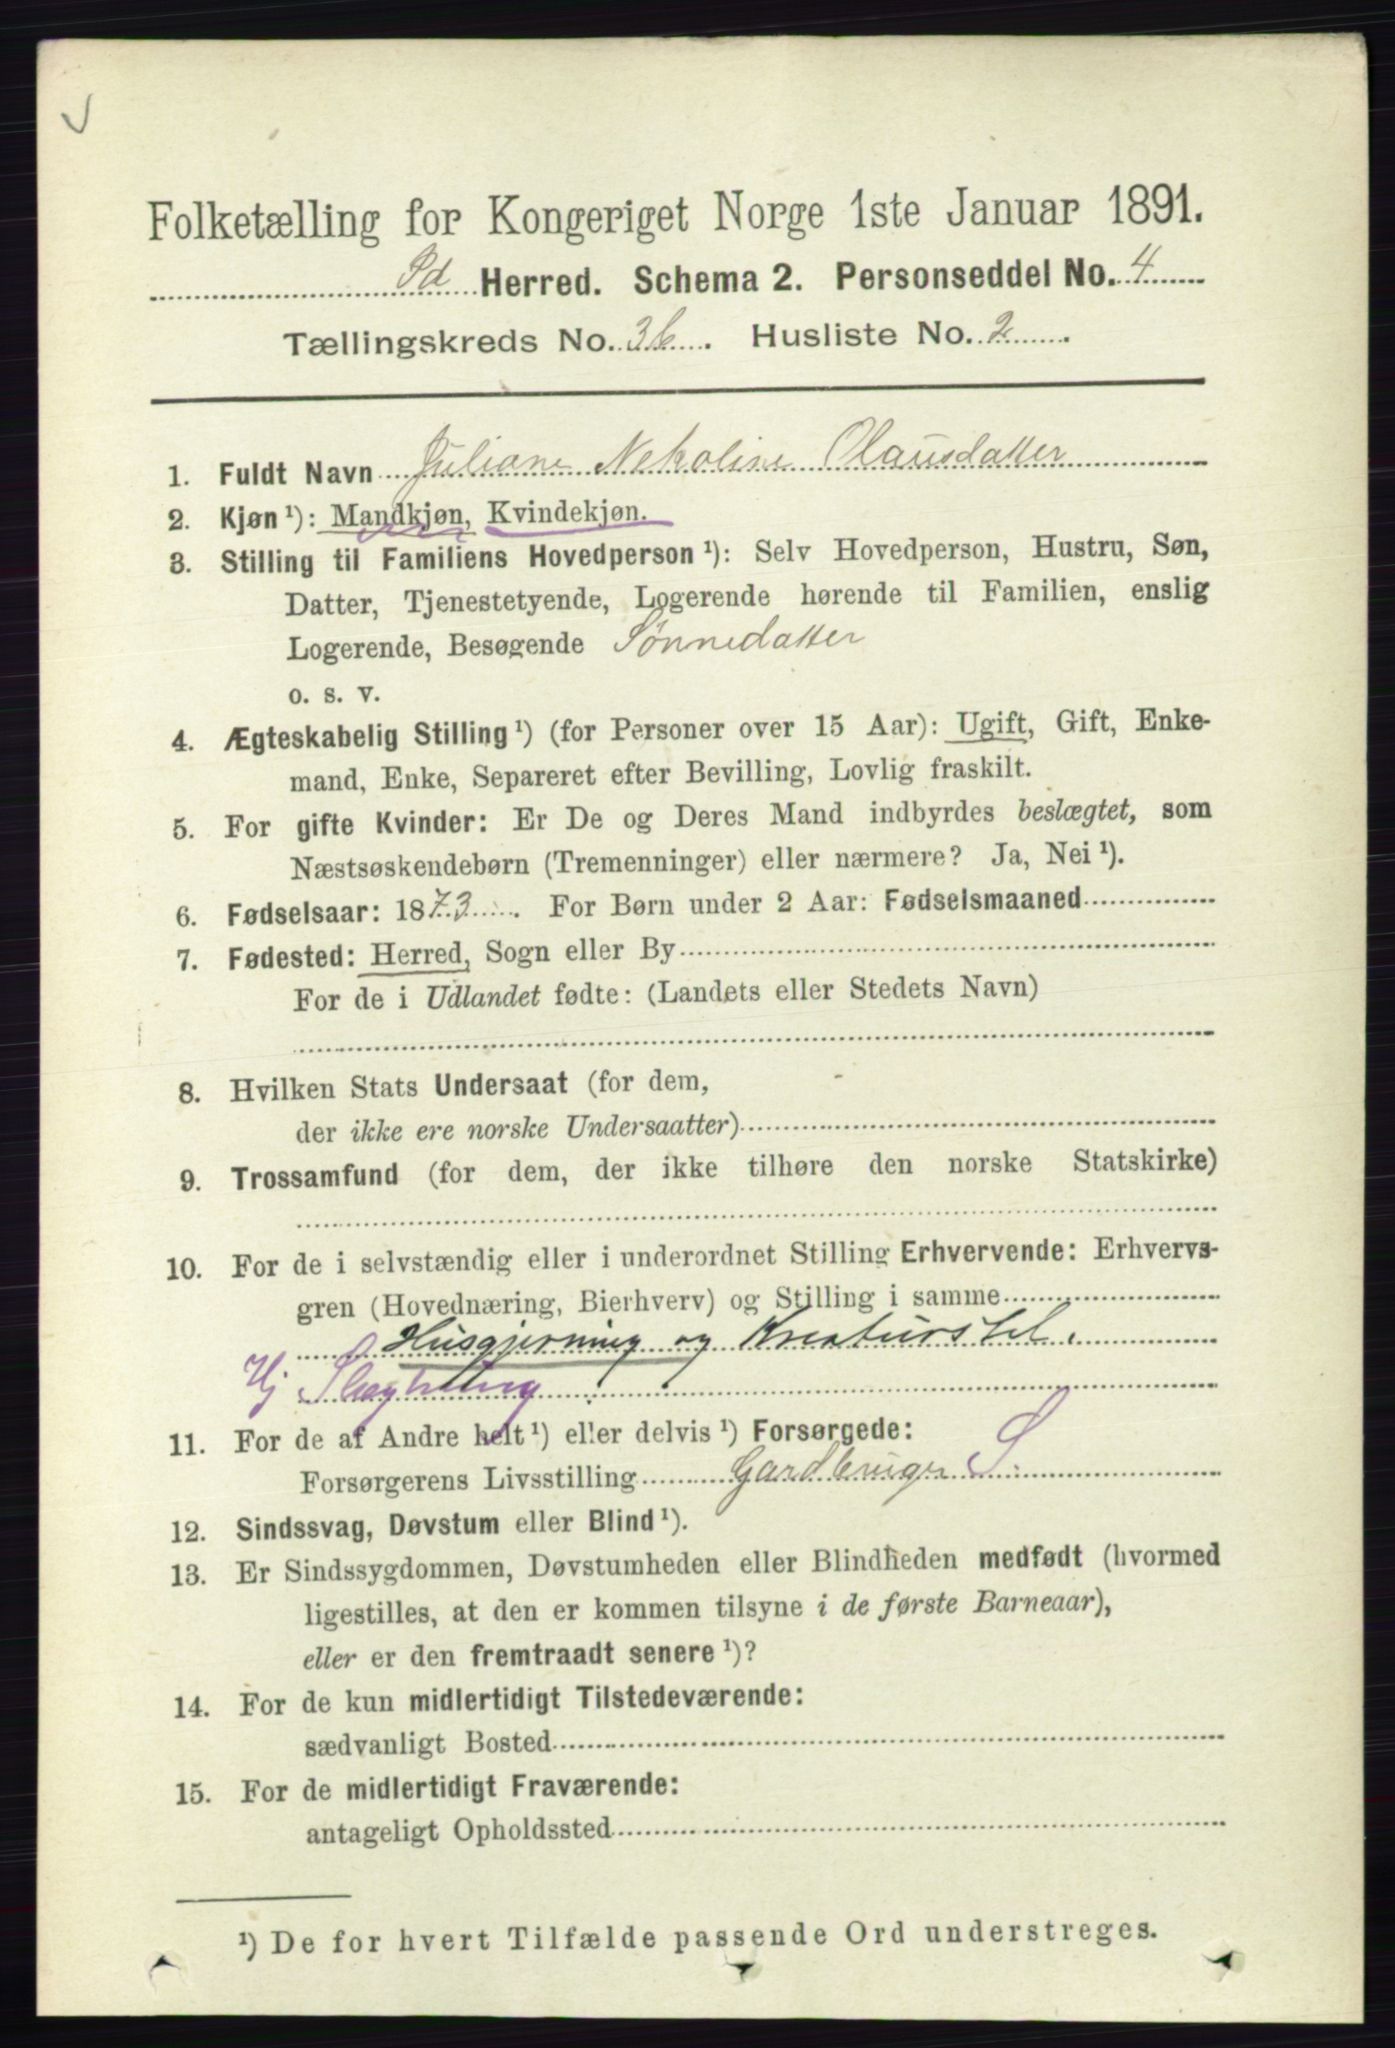 Folketælling for Kongeriget Norge 1ste Januar 1891.
Id Herred. Schema 2. Personseddel No. 4
Tællingskreds No. 3b. Husliste No. 2.
1. Fuldt Navn Juliane Nekoline Olausdatter
2. Kjøn ¹): Mandkjøn, Kvindekjøn.
3. Stilling til Familiens Hovedperson ¹): Selv Hovedperson, Hustru, Søn,
Datter, Tjenestetyende, Logerende hørende til Familien, enslig
Logerende, Besøgende Sønnedatter
o. s. v.
4. Ægteskabelig Stilling ¹) (for Personer over 15 Aar): Ugift, Gift, Enke-
mand, Enke, Separeret efter Bevilling, Lovlig fraskilt.
5. For gifte Kvinder: Er De og Deres Mand indbyrdes beslægtet, som
Næstsøskendebørn (Tremenninger) eller nærmere? Ja, Nei ¹).
6. Fødselsaar: 1873. For Børn under 2 Aar: Fødselsmaaned
7. Fødested: Herred, Sogn eller By
For de i Udlandet fødte: (Landets eller Stedets Navn)
8. Hvilken Stats Undersaat (for dem,
der ikke ere norske Undersaatter)
9. Trossamfund (for dem, der ikke tilhøre den norske Statskirke)
10. For de i selvstændig eller i underordnet Stilling Erhvervende: Erhvervs-
gren (Hovednæring, Bierhverv) og Stilling i samme
Husgjerning og Kreaturstel.
Hj
11. For de af Andre helt ¹) eller delvis ¹) Forsørgede:
Forsørgerens Livsstilling Gardbruger S
12. Sindssvag, Døvstum eller Blind ¹).
13. Er Sindssygdommen, Døvstumheden eller Blindheden medfødt (hvormed
ligestilles, at den er kommen tilsyne i de første Barneaar),
eller er den fremtraadt senere ¹)?
14. For de kun midlertidigt Tilstedeværende:
sædvanligt Bosted
15. For de midlertidigt Fraværende:
antageligt Opholdssted
¹) De for hvert Tilfælde passende Ord understreges.